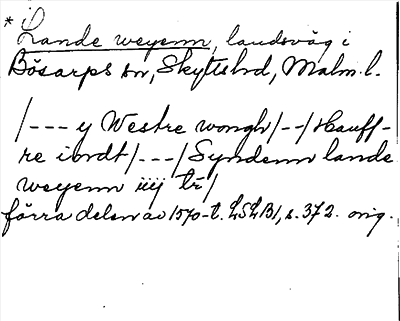 * Lande weyenn, landsväg i
Bösarps sn, Skytts hd, Malm. l.
/--- y Westre wongh/--/Hauff-
re iordt/---/Syndenn lande
weyenn iiij tr/
förra delen av 1570-t. LSLB1, s. 372. orig.